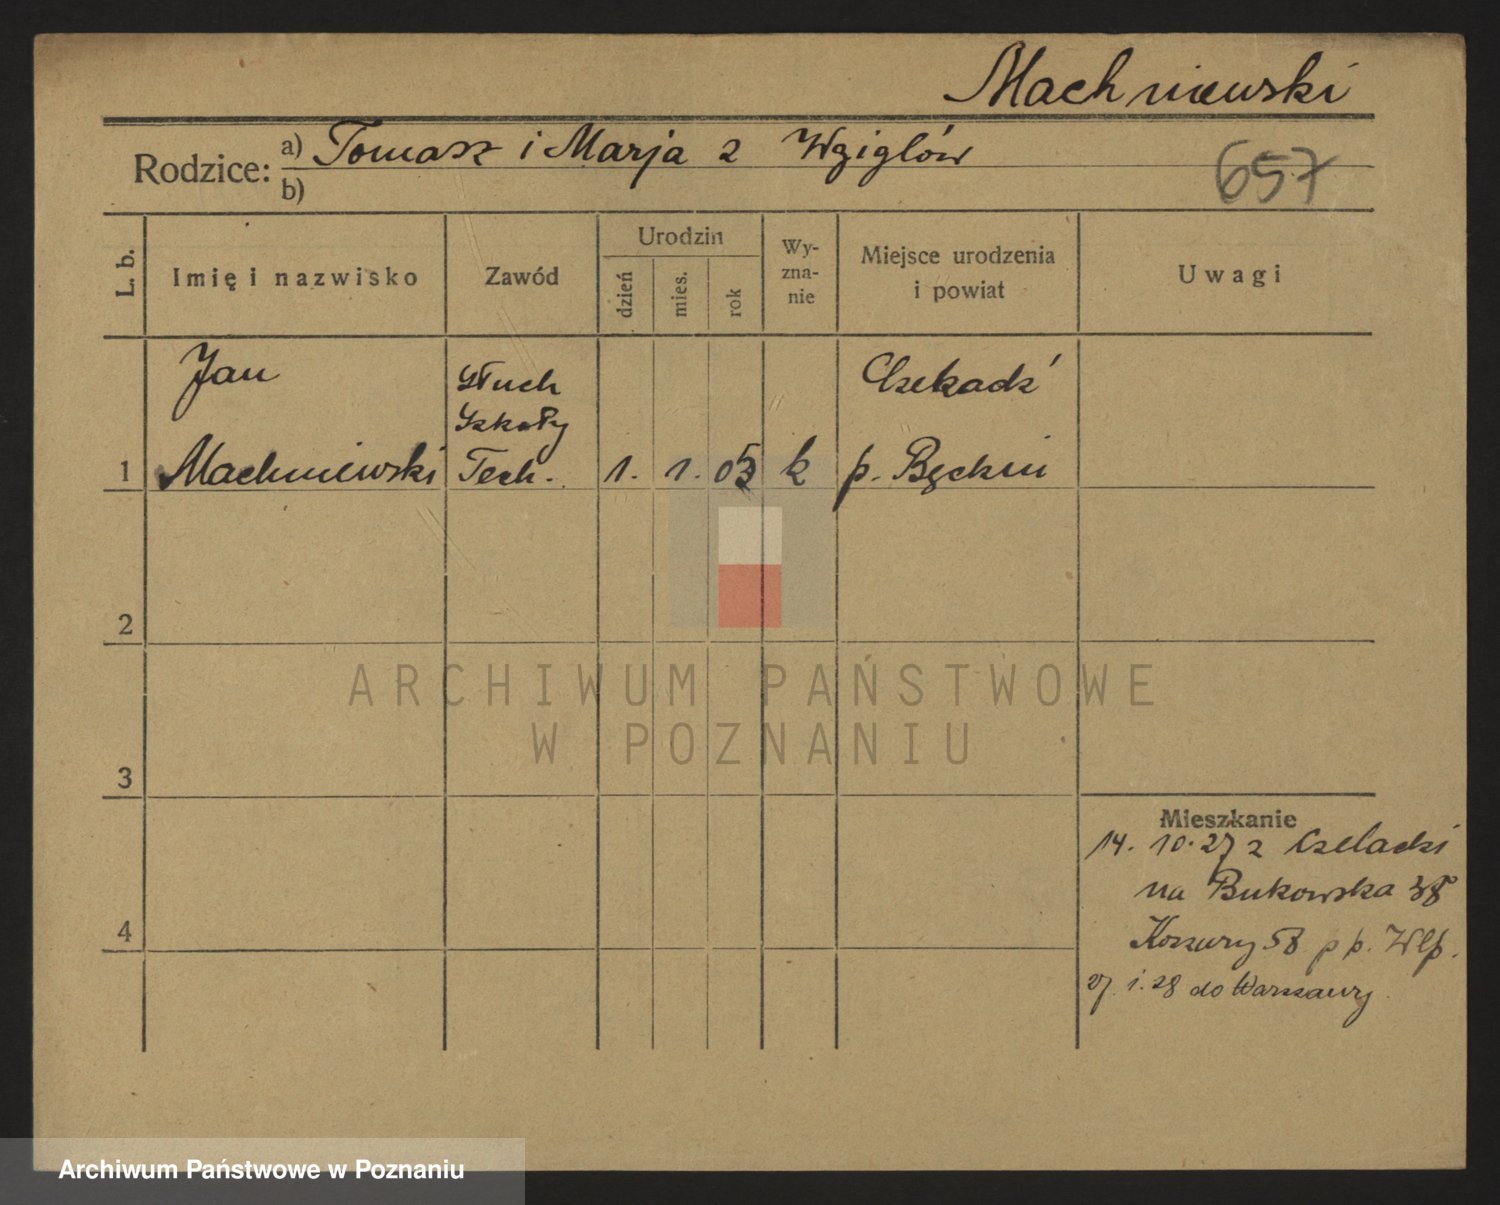 Machniewski
Rodzice: a) Tomasz i Marja z Wgiglów
b)
657
L. b.
Imię i nazwisko
Zawód
Urodzin
dzień
mies.
rok
Wy-
zna-
nie
Miejsce urodzenia
i powiat
Uwagi
Jan
Machniewski
Słuch
Szkoły
Tech.
1 1. 1. 05 k
Czekadź
p. Bęckin
2
3
4
Mieszkanie
14. 10. 27 z Czeladzi
na Bukowska 38
58 p p. Wlp.
27. 1. 28 do Warszawy
ARCHIWUM PAŃSTWOWE
W POZNANIU
Archiwum Państwowe w Poznaniu